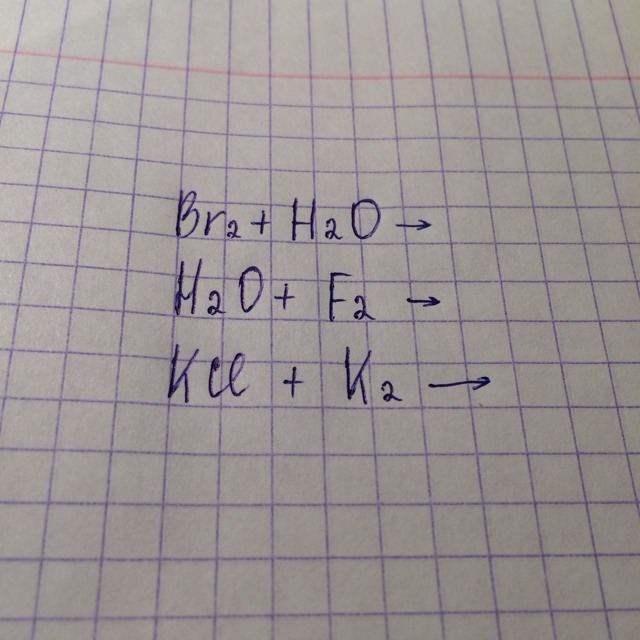 Br₂ + H₂O →
H₂O + F₂ →
KCl + K₂ →